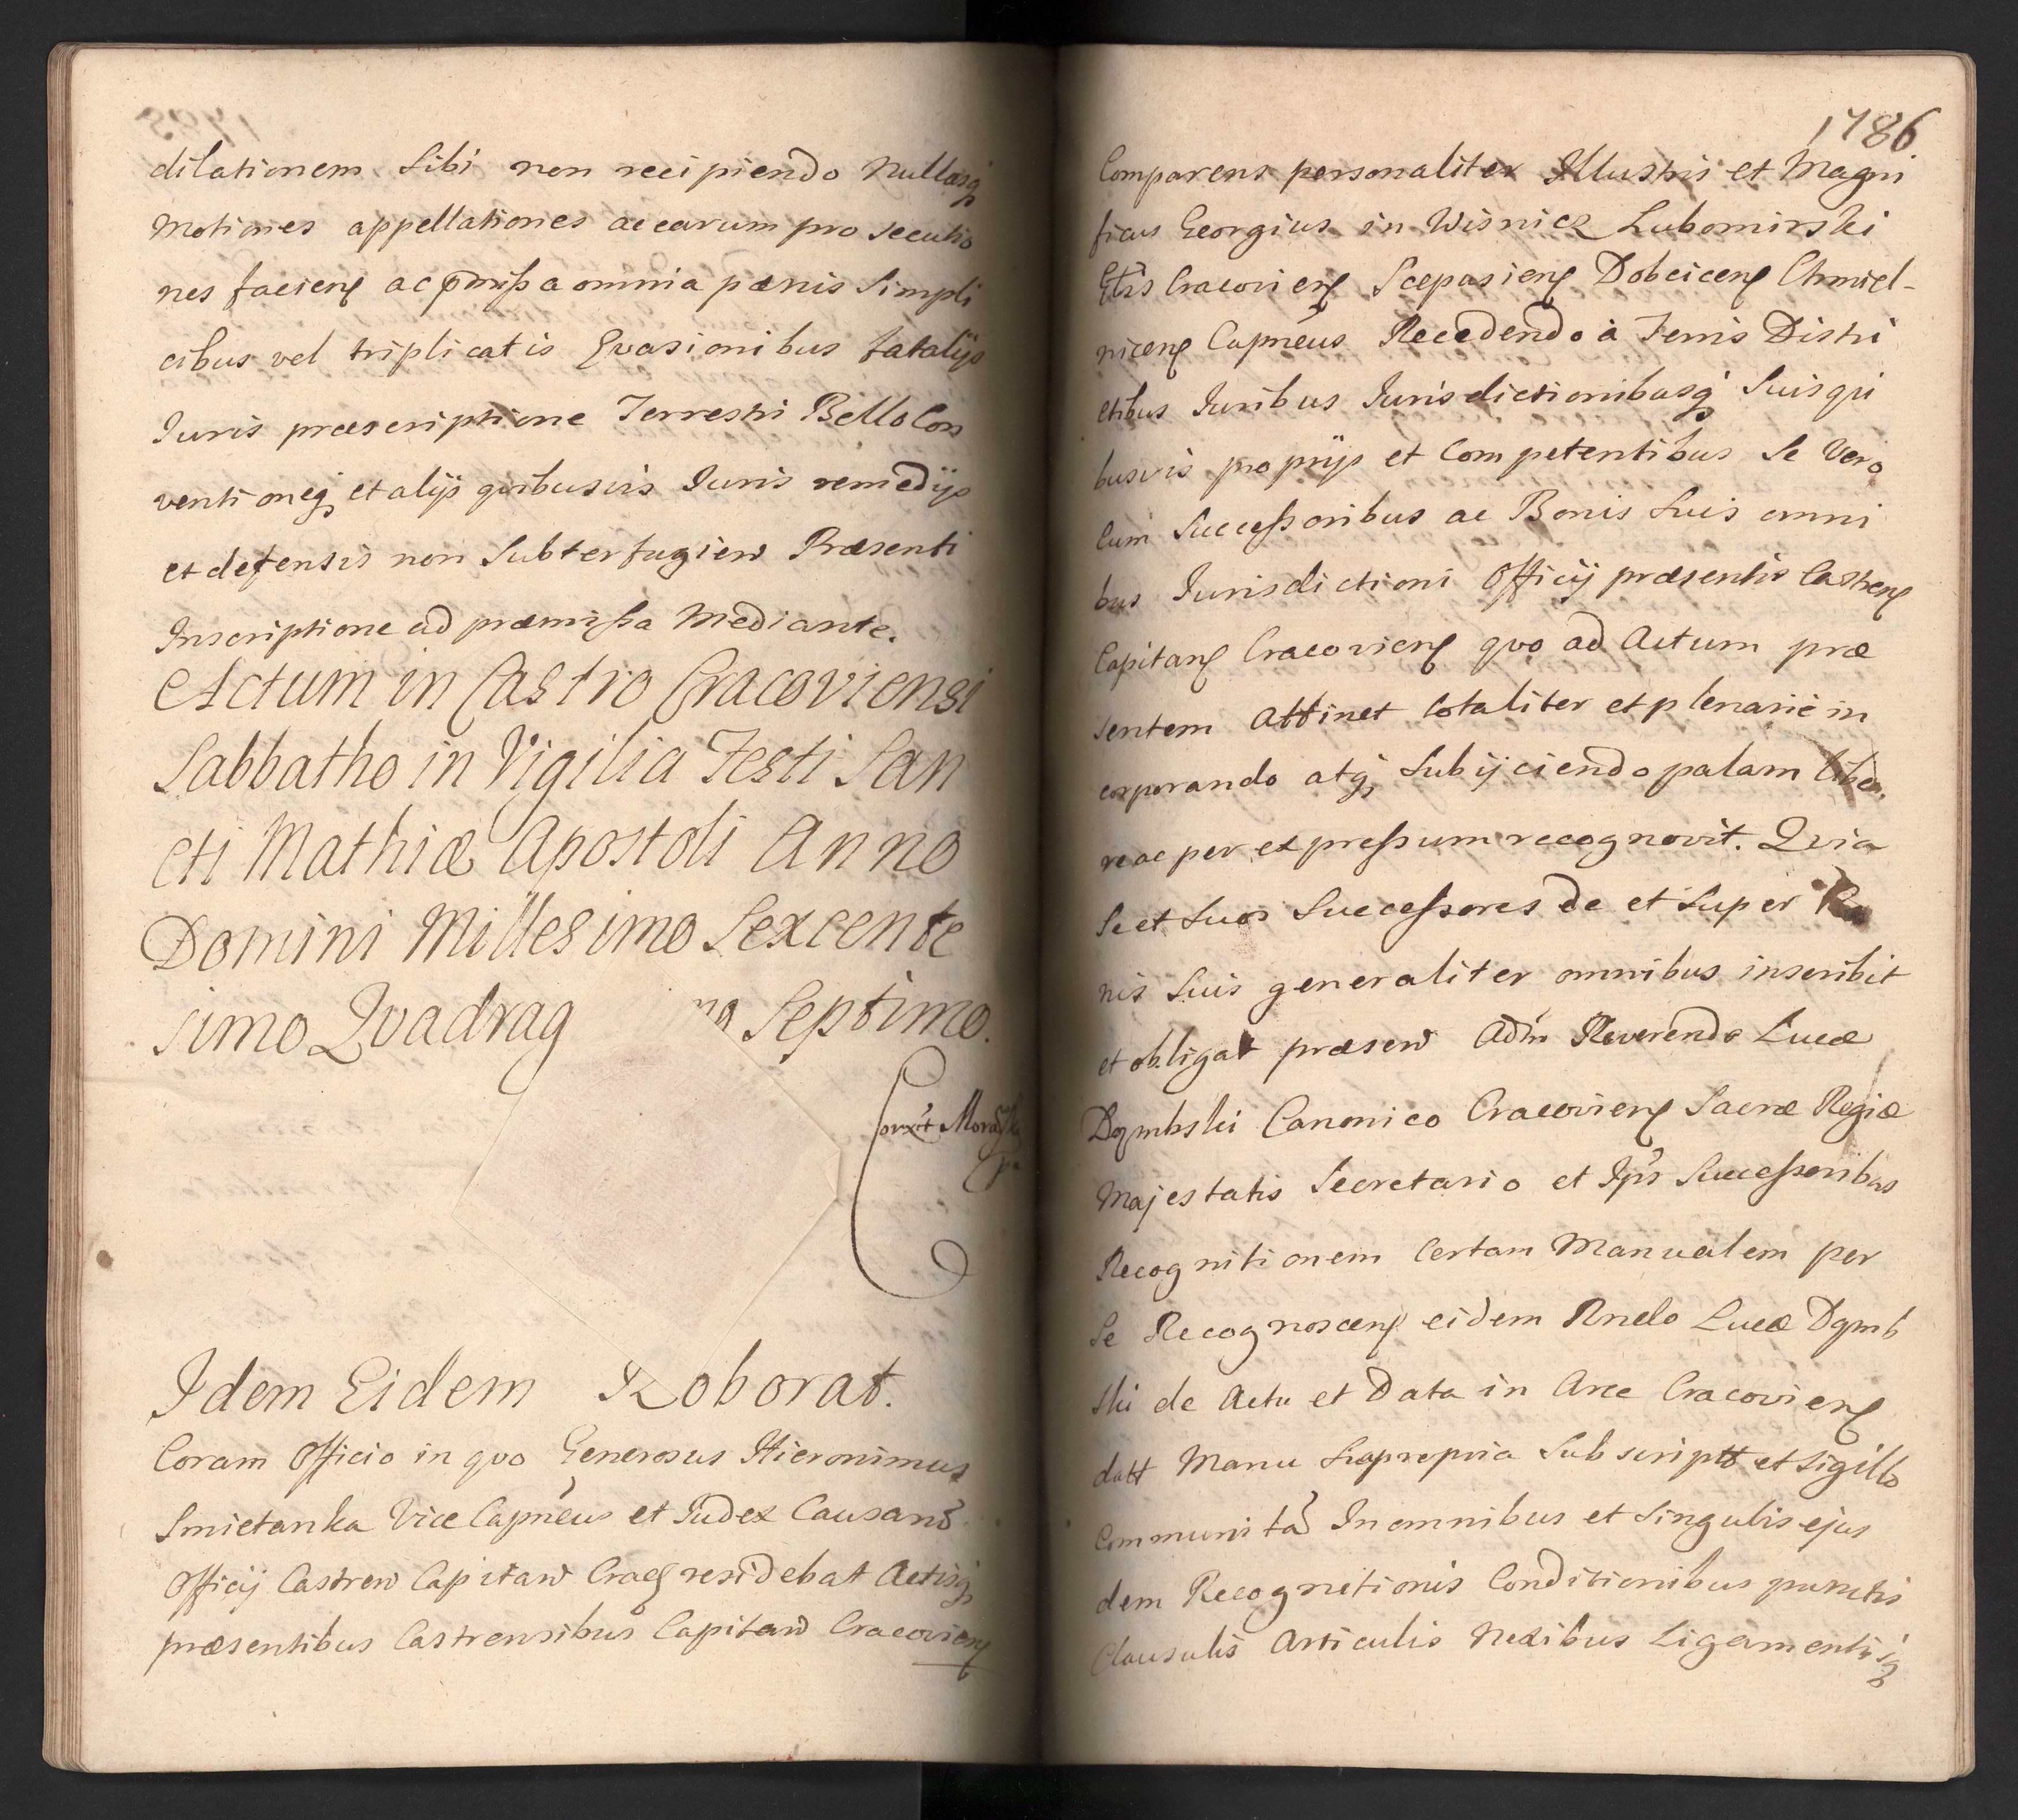 dilationem Sibi non recipiendo Nullasq;
Motiones appellationes ac earum pro secutio
nes facien ac pmissa omnia pænis Simpli
cibus vel triplicatis Evasionibus fatalijs
Juris præscriptione Terrestri Bello Con
ventioneq; et alijs quibusvis Juris remedijs
et defensis non Subterfugien Præsenti
Inscriptione ad præmissa Mediante.
Actum in Castro Cracoviensi
Sabbatho in Vigilia Festi San
cti Mathiæ Apostoli Anno
Domini Millesimo Sexcente
simo Qvadrag mo Septimo.
Idem Eidem Roborat.
Coram Officio in qvo Generosus Hieronimus
Smietanka Vice Capneus et Judex Causar
Officij Castren Capitan Crac residebat Actisq;
præsentibus Castrensibus Capitan Cracovien
1786
Comparens personaliter Illustris et Magni
ficus Georgius in Wisnicz Lubomirski
Gnlis Cracovien Scepusien Dobcicen Chmiel-
nicen Capneus Recedendo à Terris Distri
ctibus Juribus Jurisdictionibusq; Suis qui
busvis proprijs et Competentibus Se Vero
Cum Successoribus ac Bonis Suis omni
bus Jurisdictioni Officij præsentis Castren
Capitan Cracovien qvo ad Actum præ
sentem Attinet totaliter et plenariè in
corporando atq; Subijciendo palam libe
re ac per expressum recognovit. Qvia
Se et Suos Successores de et Super Bo
nis Suis generaliter omnibus inscribit
et obligat præsen Adm Reverendo Lucæ
Dąmbski Canonico Cracovien Sacræ Regiæ
Majestatis Secretario et Ips Successoribus
Recognitionem Certam Manualem per
Se Recognoscen eidem Rndo Lucæ Dąmb
ski de Actu et Data in Arce Cracovien
datt Manu Suapropria Subscript et Sigillo
Communita In omnibus et Singulis ejus
dem Recognitionis Conditionibus punctis
Clausulis Articulis Nexibus Ligamentisq;